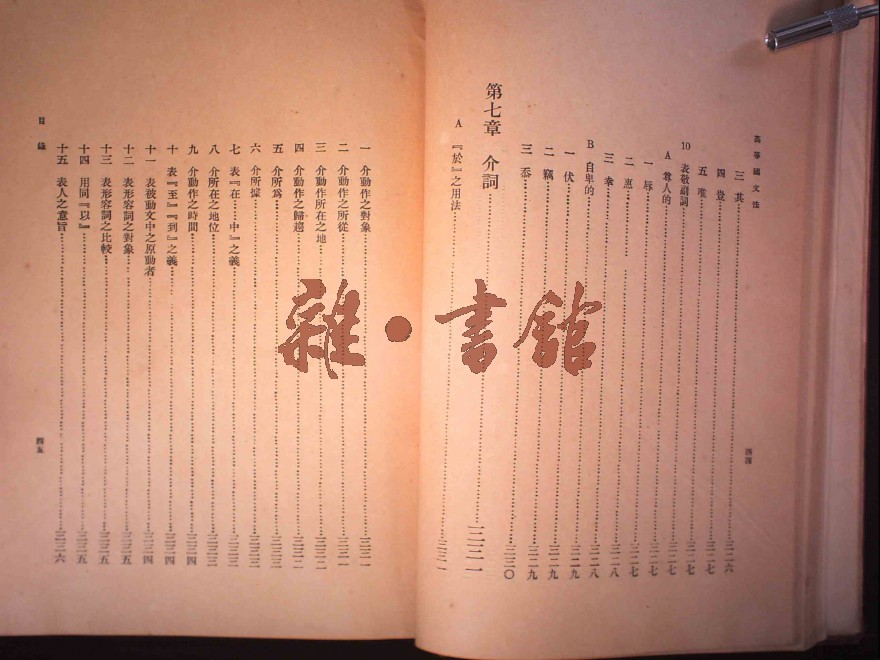 高等國文法
三 其……三二六
四 豈……三二七
五 唯……三二七
10 表敬副詞……三二七
A 尊人的……三二七
一 辱……三二七
二 惠……三二七
三 幸……三二八
B 自卑的……三二八
一 伏……三二九
二 竊……三二九
三 忝……三三〇
第七章 介詞……三三一
A 『於』之用法……三三一
四四
一 介動作之對象……三三一
二 介動作之所從……三三一
三 介動作所在之地……三三二
四 介動作之歸趨……三三二
五 介所為……三三三
六 介所據……三三三
七 表『在……中』之義……三三三
八 介所在之地位……三三三
九 介動作之時間……三三四
十 表『至』『到』之義……三三四
十一 表被動文中之原動者……三三四
十二 表形容詞之對象……三三五
十三 表形容詞之比較……三三五
十四 用同『以』……三三五
十五 表人之意旨……三三六
目錄
四五
雜·書館